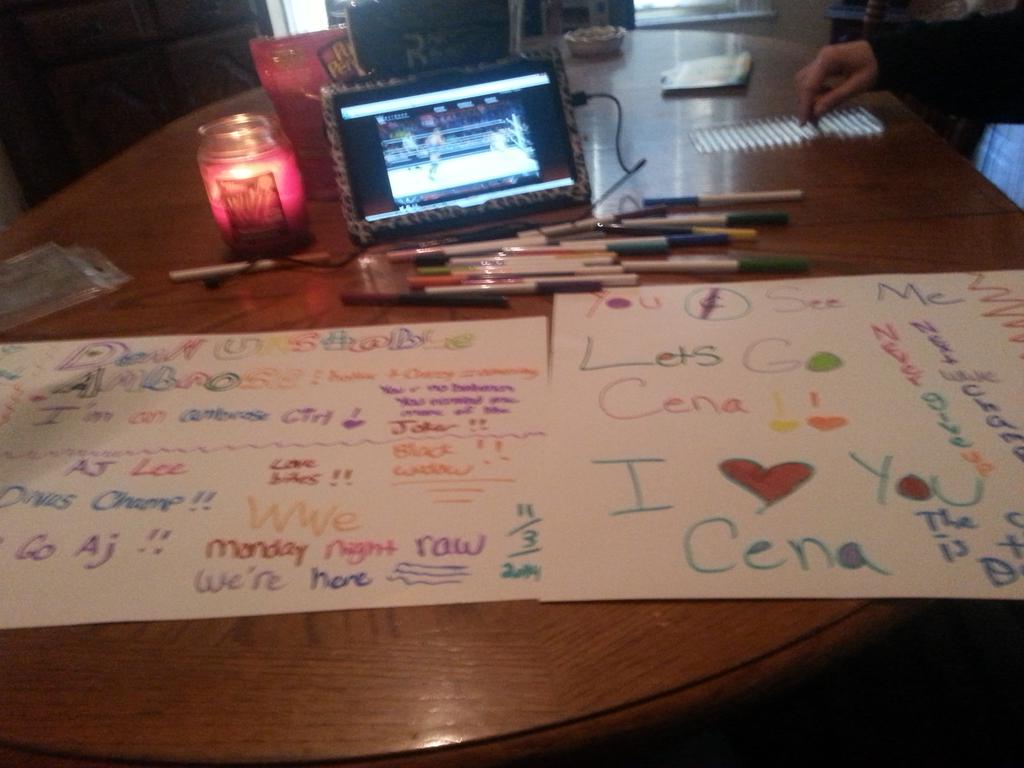 Dean Unstable
Ambrose
I am an ambrose Girl!
You r no batman
You remind me
more of the
Joker !!
AJ Lee
Love
bites !!
Black !!
widow
Divas Champ !!
WWe
Go Aj !!
monday night raw
we're here
11/3/2014
You See Me
Lets Go
Cena !!
I ❤ You
Cena
Never
Give up
The